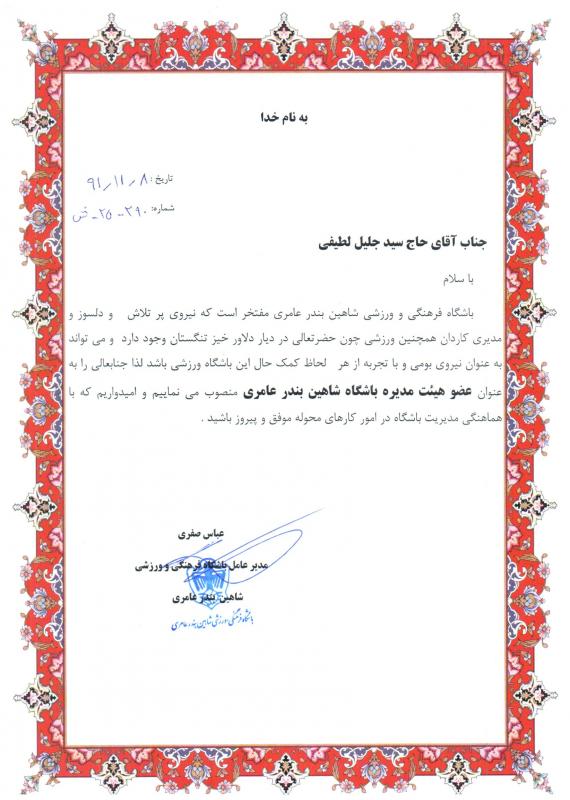 به نام خدا
تاریخ : ۹۱/۱۱/۸
شماره: ۲۹۰-۲۵-ض
جناب آقای حاج سید جلیل لطیفی
با سلام
باشگاه فرهنگی و ورزشی شاهین بندر عامری مفتخر است که نیروی پر تلاش و دلسوز و
مدیری کاردان همچنین ورزشی چون حضرتعالی در دیار دلاور خیز تنگستان وجود دارد و می تواند
به عنوان نیروی بومی و با تجربه از هر لحاظ کمک حال این باشگاه ورزشی باشد لذا جنابعالی را به
عنوان عضو هیئت مدیره باشگاه شاهین بندر عامری منصوب می نماییم و امیدواریم که با
هماهنگی مدیریت باشگاه در امور کارهای محوله موفق و پیروز باشید .
عباس صفری
مدیر عامل باشگاه فرهنگی و ورزشی
شاهین بندر عامری
باشگاه فرهنگی ورزشی شاهین بندر عامری